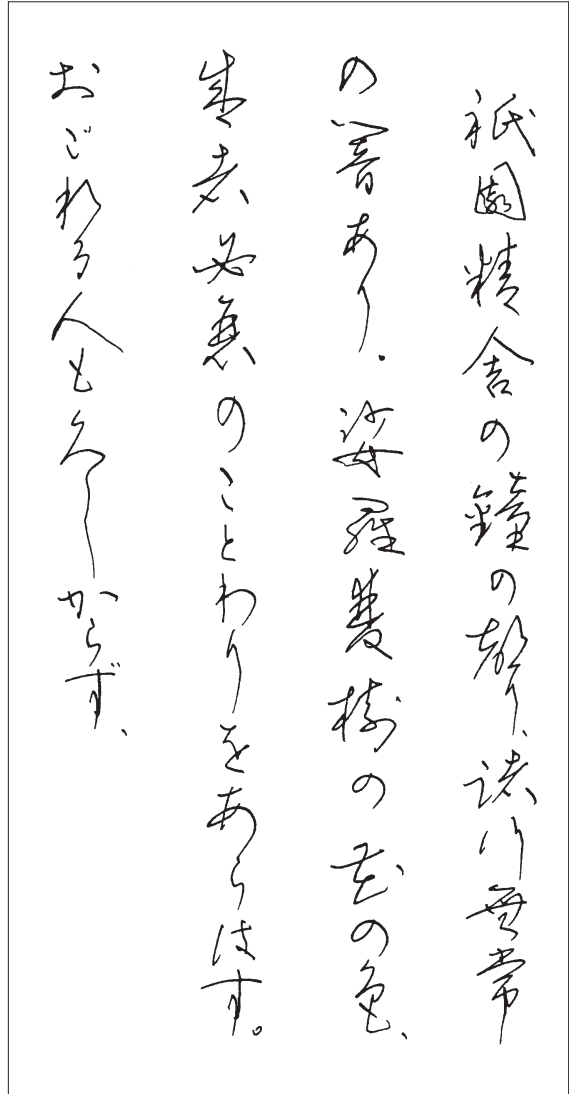 祇園精舎の鐘の聲、諸行無常
の響あり。娑羅雙樹の花の色、
盛者必衰のことわりをあらはす。
おごれる人も久しからず、